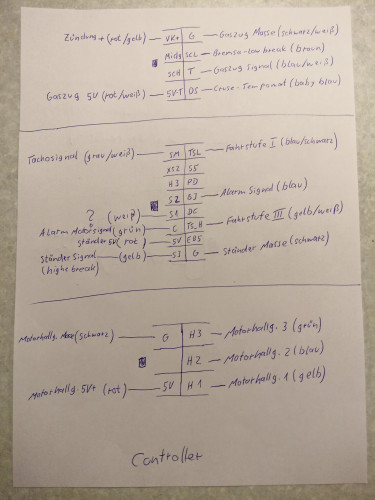 Zündung + (rot/gelb) VK+ G Gaszug Masse (schwarz/weiß)
SCL Bremse-low break (braun)
SCH T Gaszug Signal (blau/weiß)
Gaszug 5V (rot/weiß) 5V-T DS Cruse-Tempomat (baby blau)
Tachosignal (grau/weiß) SM TSL Fahrstufe I (blau/schwarz)
XS2 S5
H3 PD
S2 GJ Alarm Signal (blau)
? (weiß) S1 DC
Alarm Motorsignal (grün) C TS_H Fahrstufe III (gelb/weiß)
Ständer 5V (rot) 5V EBS
Ständer Signal (gelb) SJ G Ständer Masse (schwarz)
(highe break)
Motorhallg. (schwarz) G H3 Motorhallg. 3 (grün)
H2 Motorhallg. 2 (blau)
Motorhallg. 5V+ (rot) 5V H1 Motorhallg. 1 (gelb)
Controller